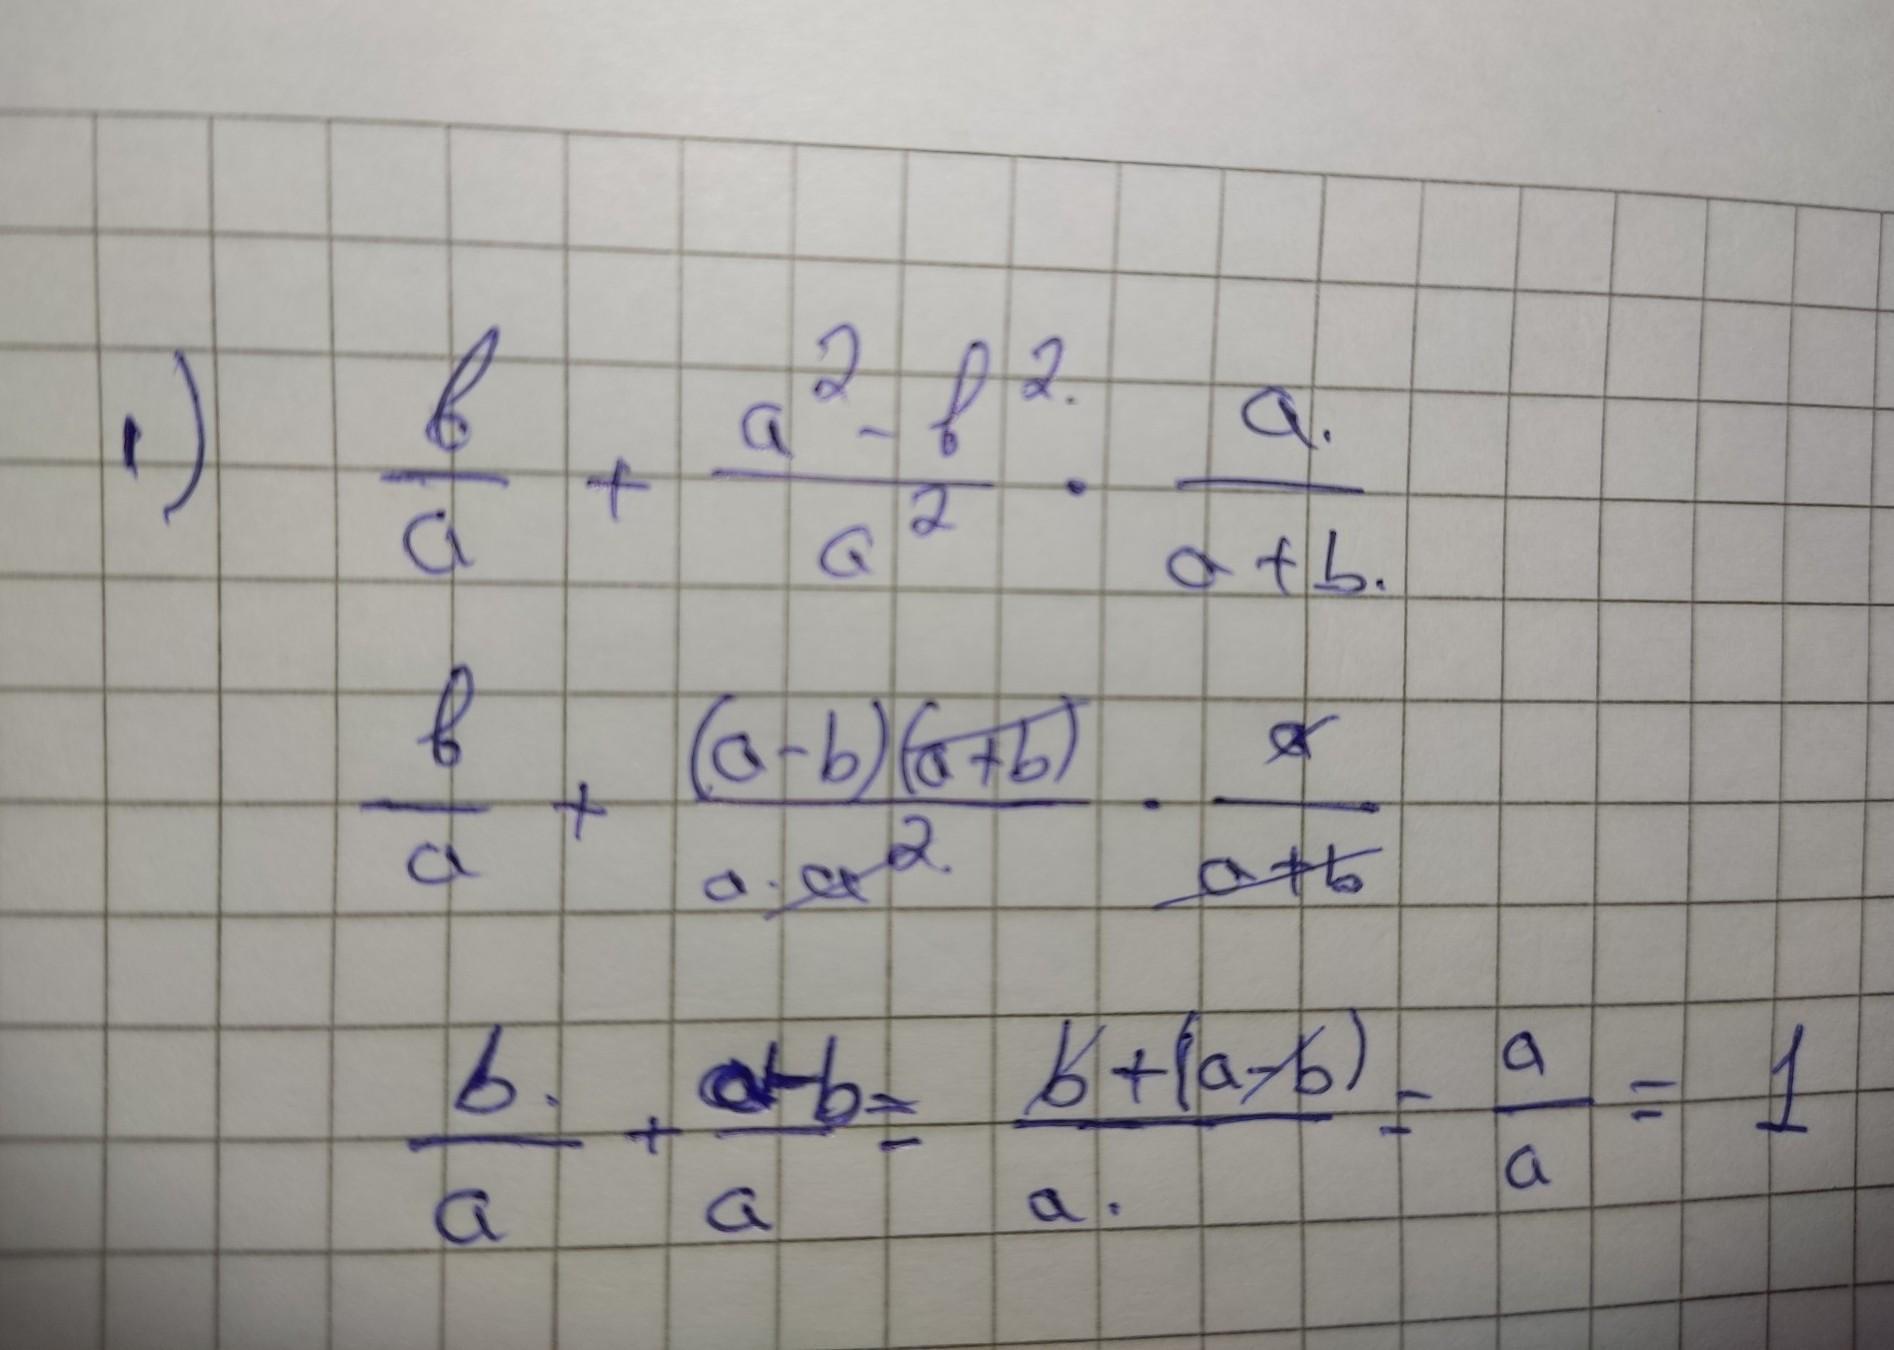 1) b/a + (a² - b².)/a² · a./(a + b.)
b/a + ((a-b)(a+b))/(a·a²) · a/(a+b)
b./a + (a-b)/a = (b+(a-b))/a. = a/a = 1